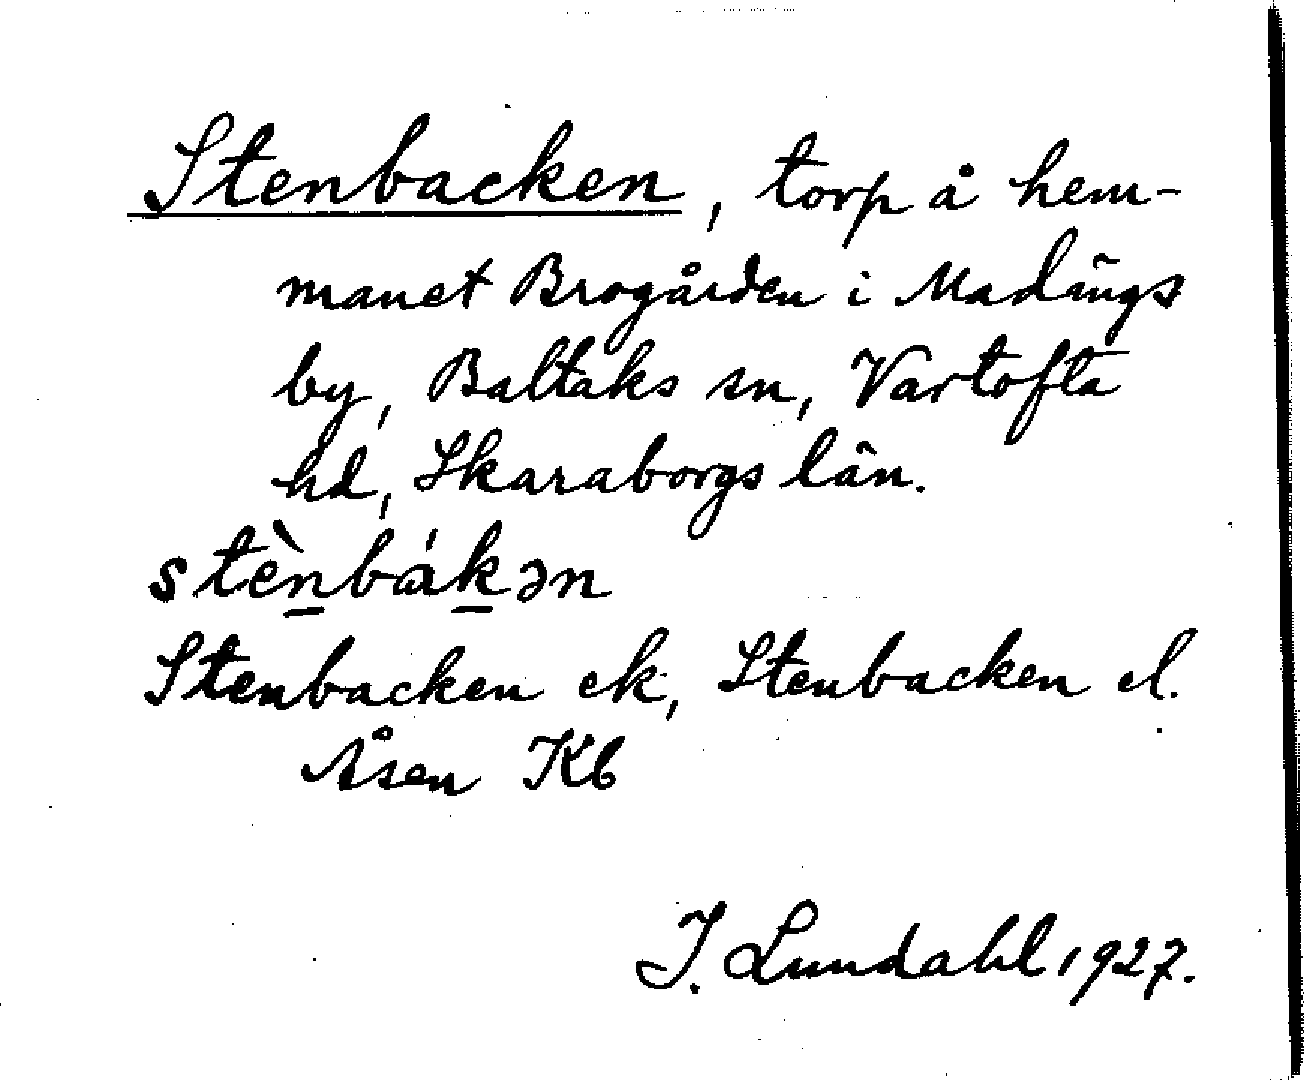 Stenbacken, torp å hem-
manet Brogården i Madängs
by, Baltaks sn, Vartofta
hd, Skaraborgs län.
stèn̲bák̲ən
Stenbacken ek, Stenbacken el.
Åsen Kb
I. Lundahl 1927.